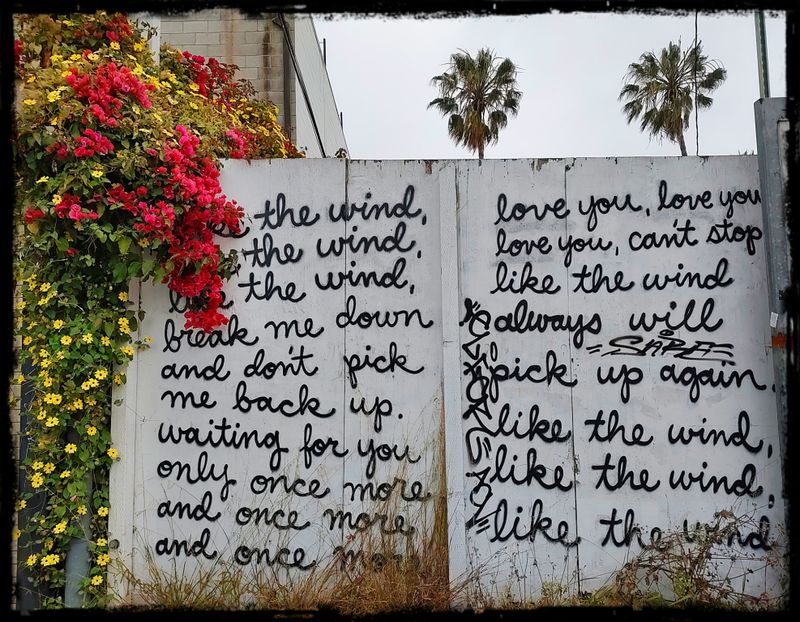 the wind,
the wind,
the wind,
break me down
and don't pick
me back up.
waiting for you
only once more
and once more
and once more
love you, love you
love you, can't stop
like the wind
always will
pick up again.
like the wind,
like the wind,
like the wind